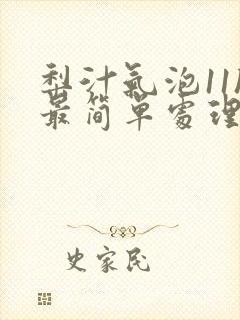 梨汁氣泡11
最简單處理
史家民